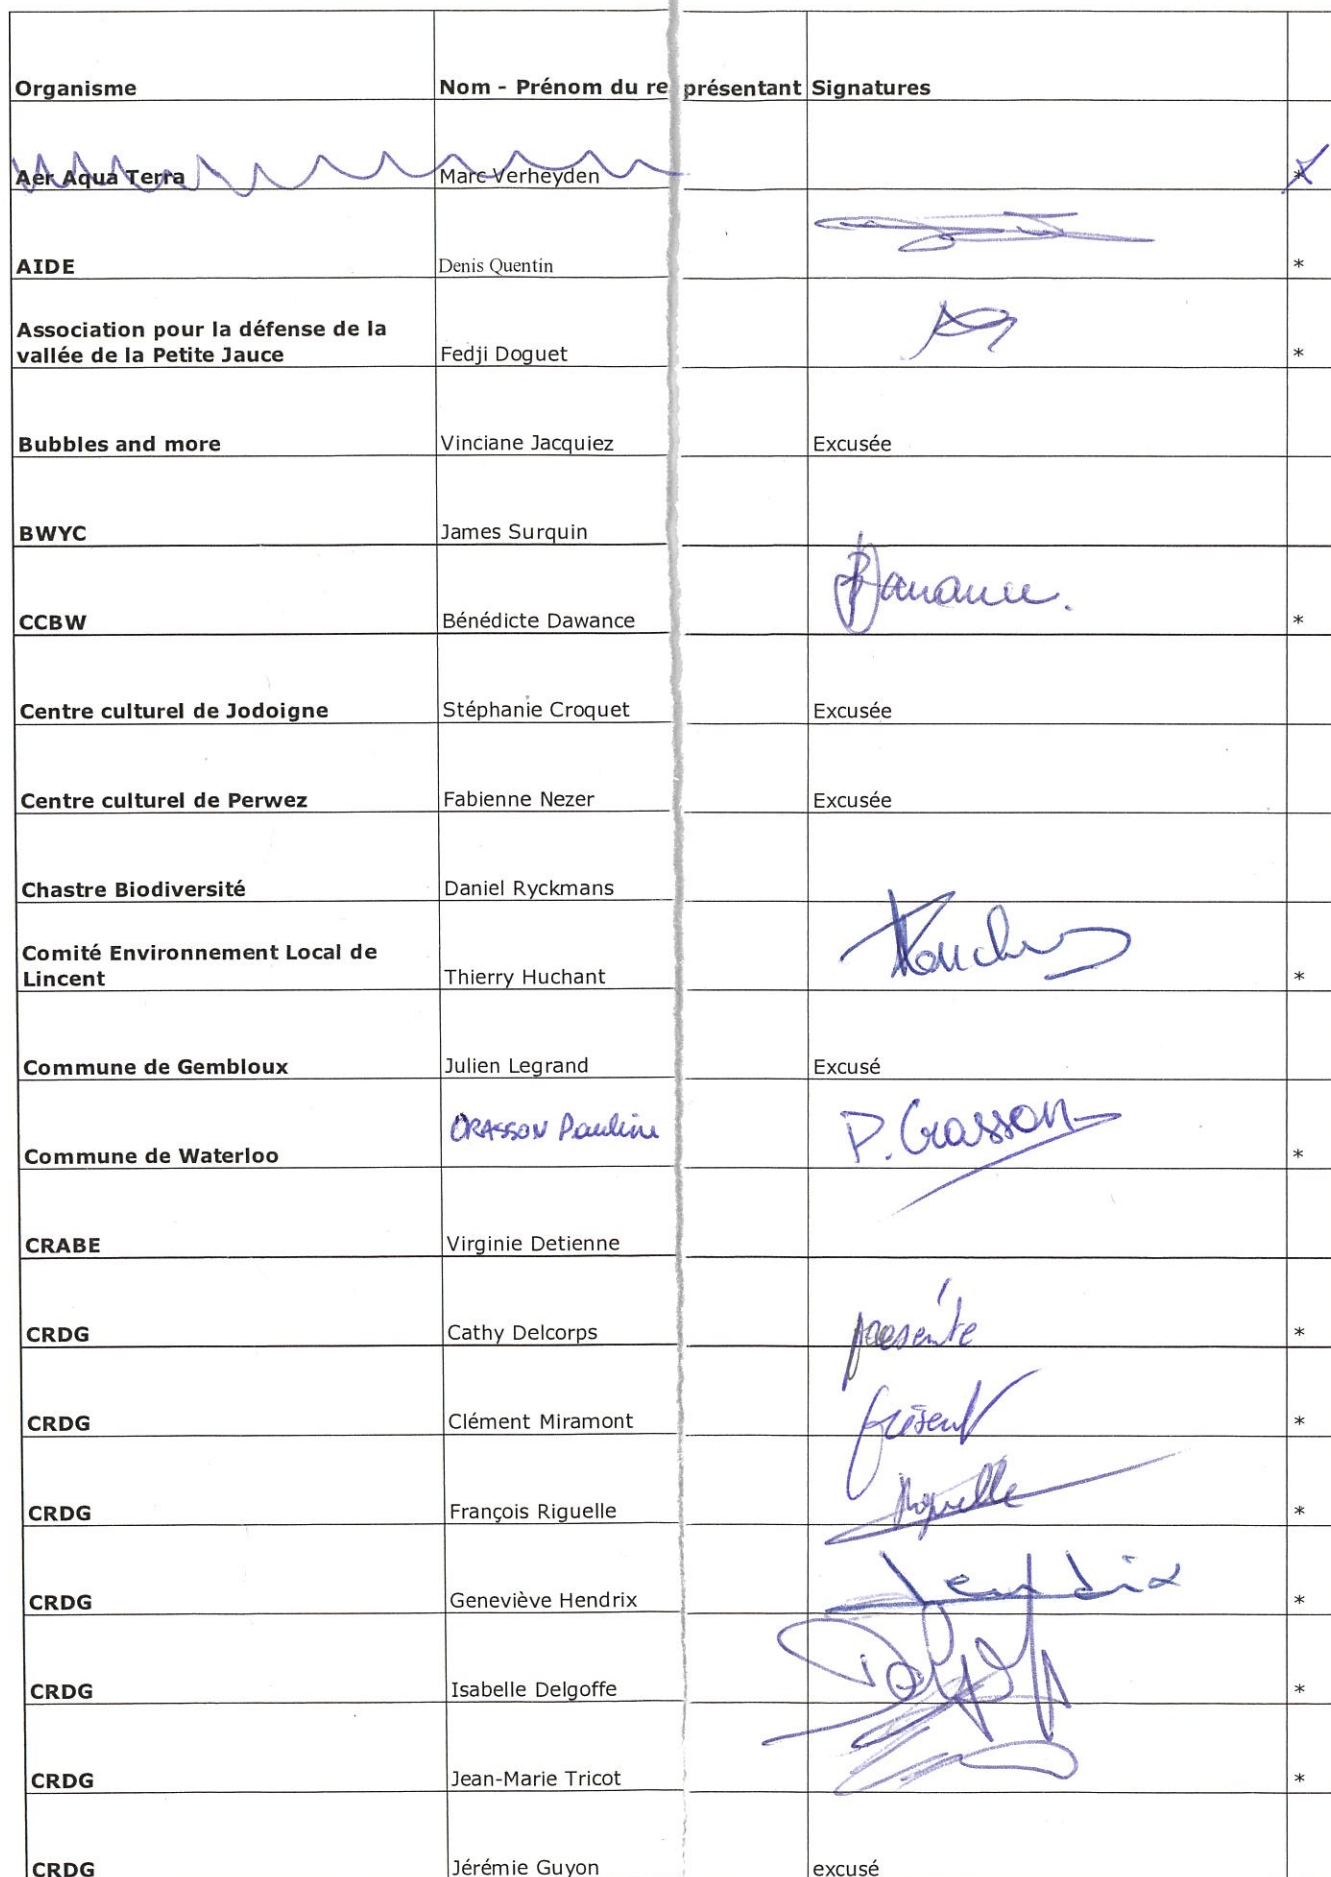 Organisme Nom - Prénom du représentant Signatures
Aer Aqua Terra Marc Verheyden *
AIDE Denis Quentin *
Association pour la défense de la
vallée de la Petite Jauce Fedji Doguet *
Bubbles and more Vinciane Jacquiez Excusée
BWYC James Surquin
CCBW Bénédicte Dawance *
Centre culturel de Jodoigne Stéphanie Croquet Excusée
Centre culturel de Perwez Fabienne Nezer Excusée
Chastre Biodiversité Daniel Ryckmans
Comité Environnement Local de
Lincent Thierry Huchant *
Commune de Gembloux Julien Legrand Excusé
Commune de Waterloo CRASSON Pauline P. Crasson *
CRABE Virginie Detienne
CRDG Cathy Delcorps présente *
CRDG Clément Miramont présent *
CRDG François Riguelle Riguelle *
CRDG Geneviève Hendrix Hendrix *
CRDG Isabelle Delgoffe *
CRDG Jean-Marie Tricot *
CRDG Jérémie Guyon excusé